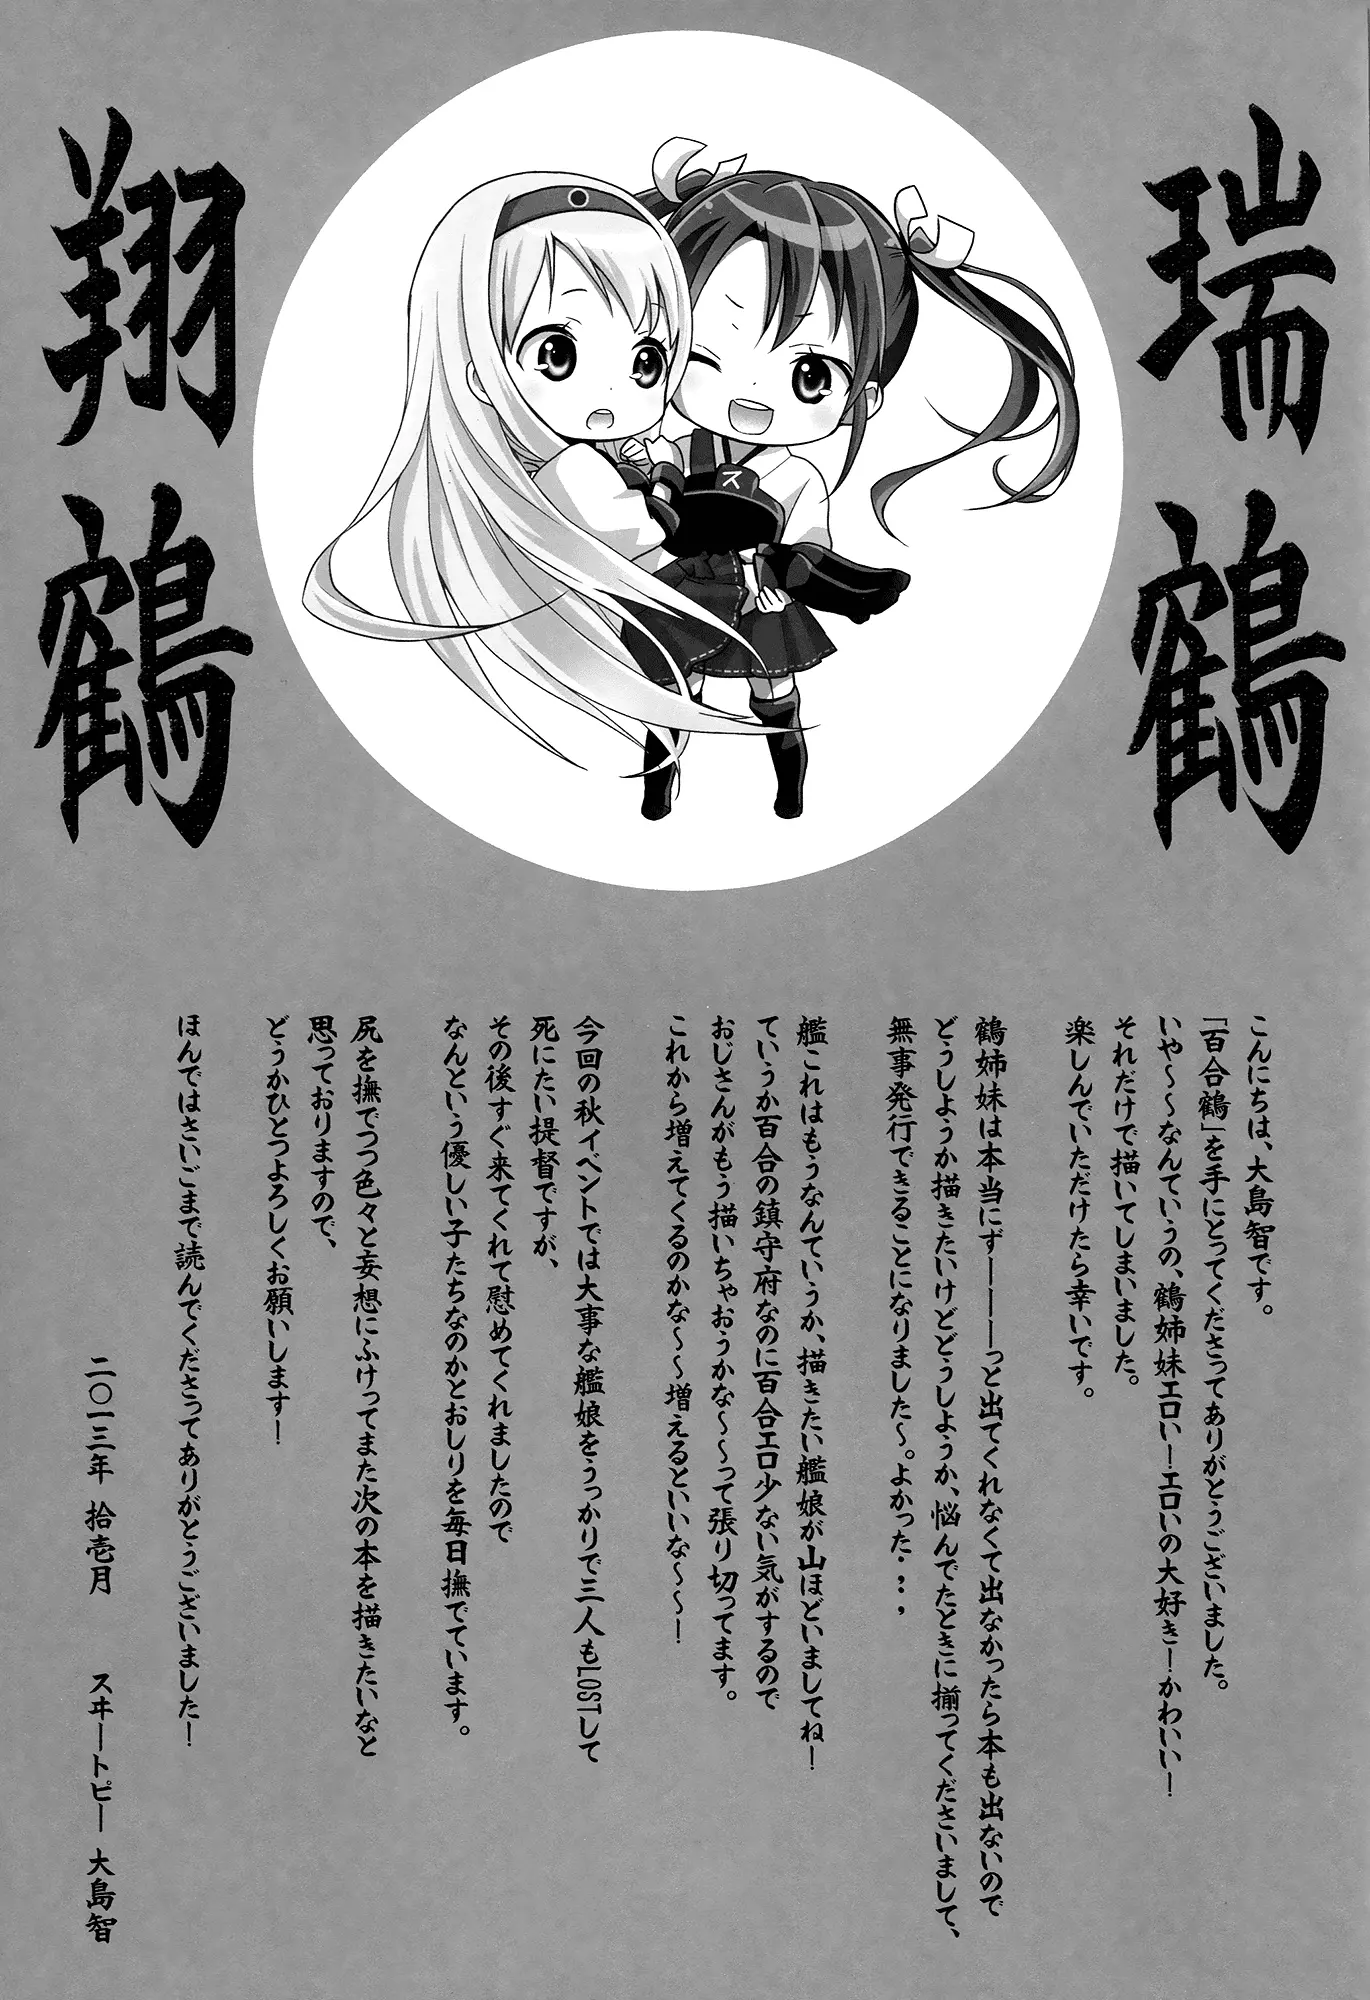 瑞鶴
翔鶴
ス
こんにちは、大島智です。
「百合鶴」を手にとってくださってありがとうございました。
いや〜〜なんていうの、鶴姉妹エロい！エロいの大好き！かわいい！
それだけで描いてしまいました。
楽しんでいただけたら幸いです。
鶴姉妹は本当にずーーーっと出てくれなくて出なかったら本も出ないので
どうしようか描きたいけどどうしようか、悩んでたときに揃ってくださいまして、
無事発行できることになりました〜。よかった・・・
艦これはもうなんていうか、描きたい艦娘が山ほどいましてね！
ていうか百合の鎮守府なのに百合エロ少ない気がするので
おじさんがもう描いちゃおうかな〜〜って張り切ってます。
これから増えてくるのかな〜〜増えるといいな〜〜！
今回の秋イベントでは大事な艦娘をうっかりで三人もLOSTして
死にたい提督ですが、
その後すぐ来てくれて慰めてくれましたので
なんという優しい子たちなのかとおしりを毎日撫でています。
尻を撫でつつ色々と妄想にふけってまた次の本を描きたいなと
思っておりますので、
どうかひとつよろしくお願いします！
ほんではさいごまで読んでくださってありがとうございました！
二〇一三年 拾壱月 スヰートピー 大島智